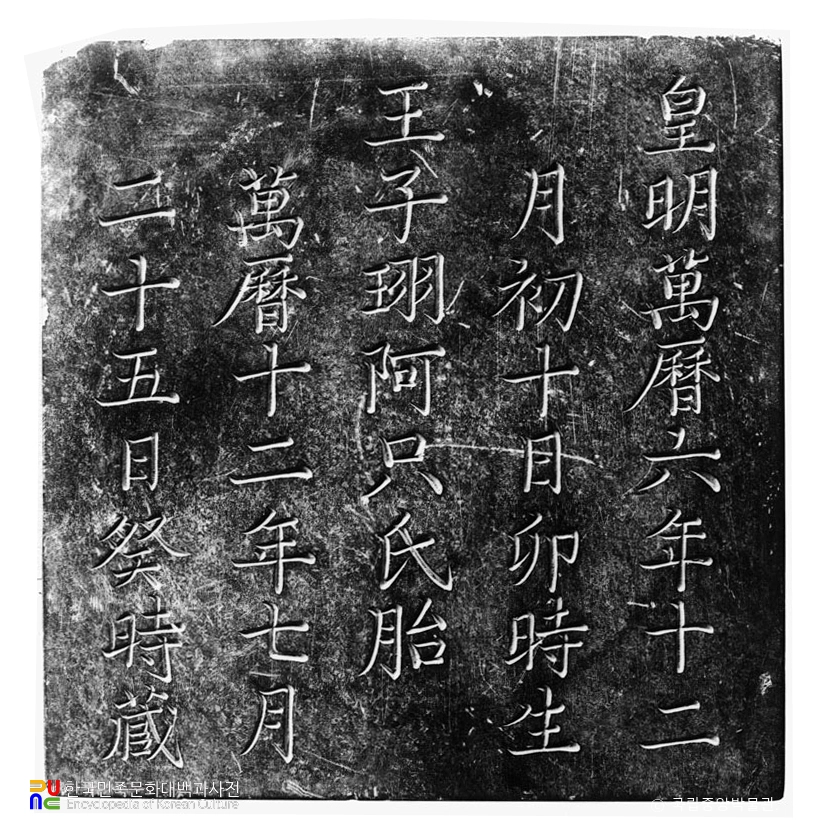 皇明萬曆六年十二
月初十日卯時生
王子珝阿只氏胎
萬曆十二年七月
二十五日癸時藏
한국민족문화대백과사전
Encyclopedia of Korean Culture